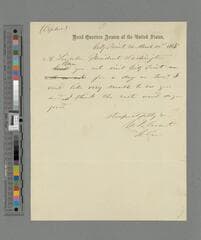 (Cypher)
Head Quarters Armies of the United States,
City Point, Va. March 20th 1865
A. Lincoln President Washington
Can
you not visit City Point
for a day or two? I
would like very much to see you
and I think the rest would do you
good.
Respectfully &c
U. S. Grant
Lt. Gn.